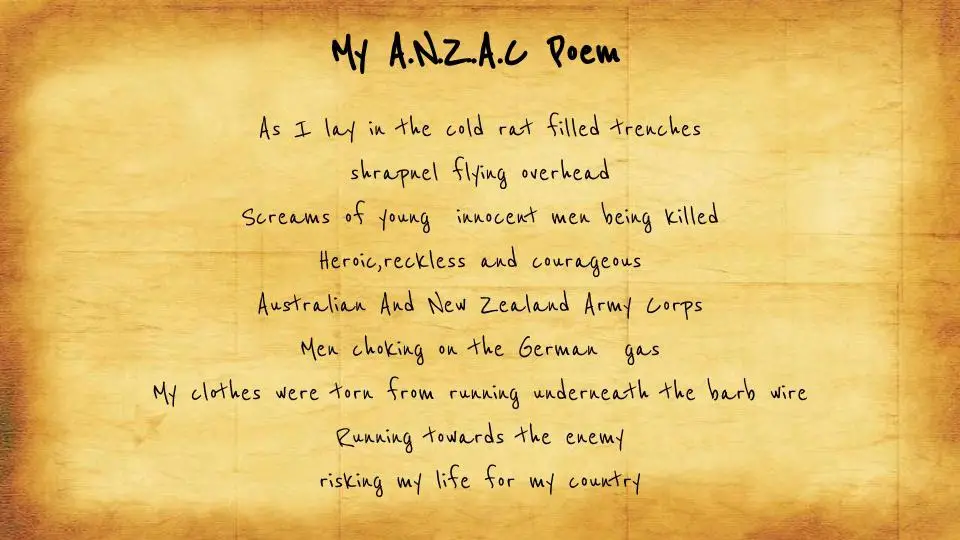 My A.N.Z.A.C Poem
As I lay in the cold rat filled trenches
shrapnel flying overhead
Screams of young innocent men being killed
Heroic,reckless and courageous
Australian And New Zealand Army Corps
Men choking on the German gas
My clothes were torn from running underneath the barb wire
Running towards the enemy
risking my life for my country